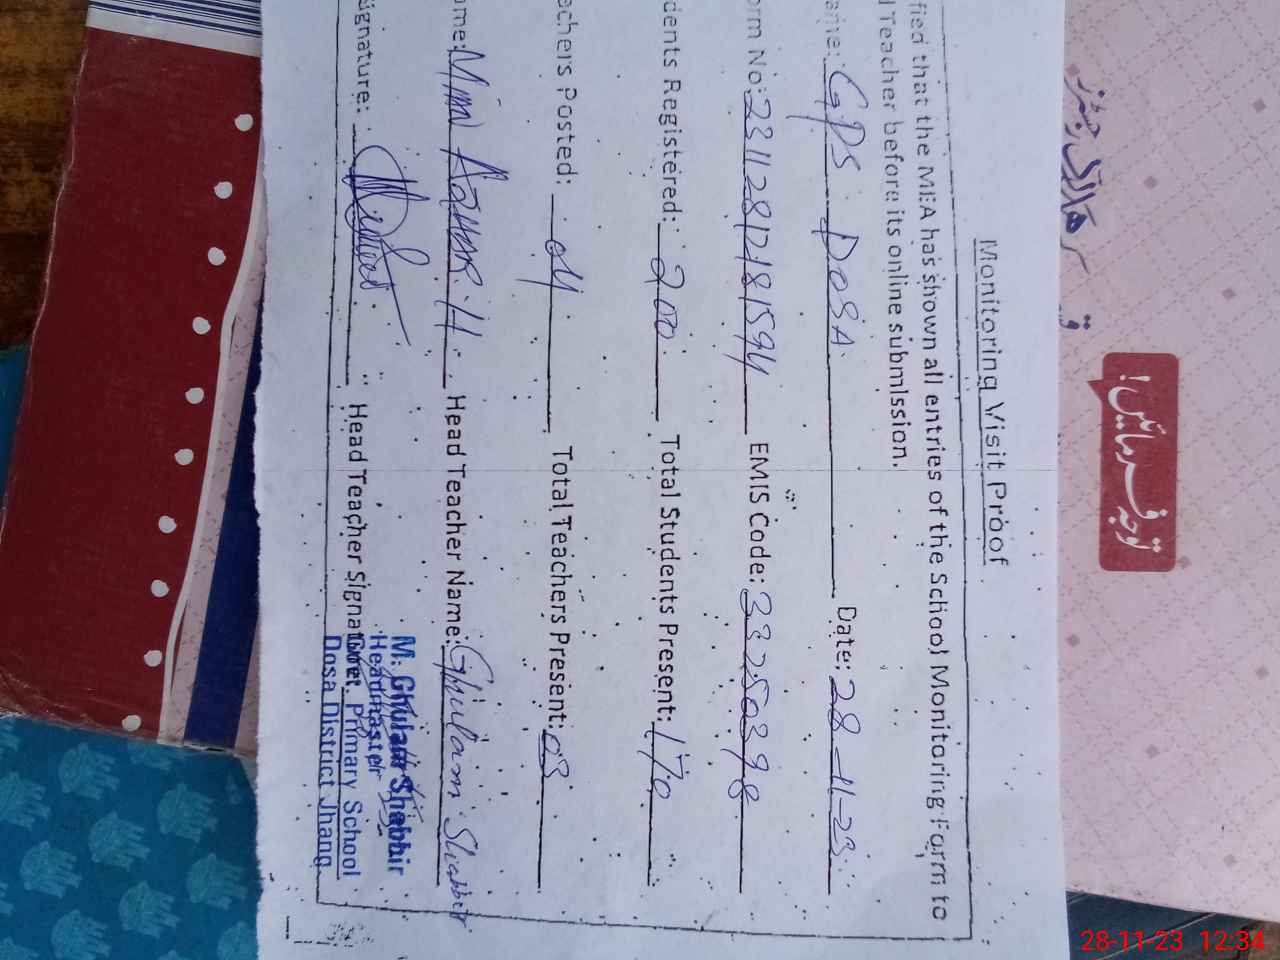 Monitoring Visit Proof
fied that the MEA has shown all entries of the School Monitoring Form to
Teacher before its online submission.
ame: GPS DOSA Date: 28-11-23
orm No: EMIS Code: 33250398
dents Registered: 200 Total Students Present: 170
achers Posted: 04 Total Teachers Present: 03
ame: Head Teacher Name: Ghulam Shabbir
ignature: Head Teacher Signature:
M. Ghulam Shabbir
Headmaster
Govt. Primary School
Dosa District Jhang
توجہ فرمائیں!
28-11-23 12:34